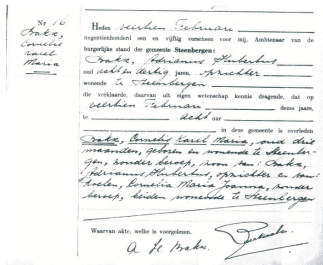 No 16
Baka,
Cornelis
Karel
Maria
Heden veertien Februari
negentienhonderd een en vijftig verscheen voor mij, Ambtenaar van de
burgerlijke stand der gemeente Steenbergen:
Baka, Adrianus Hubertus
oud acht en dertig jaren, opzichter
wonende te Steenbergen
die verklaarde, daarvan uit eigen wetenschap kennis dragende, dat op
veertien Februari dezes jaars,
te acht uur
in deze gemeente is overleden
Baka, Cornelis Karel Maria, oud drie
maanden, geboren en wonende te Steenber-
gen, zonder beroep, zoon van: Baka,
Adrianus Hubertus, opzichter en van:
Roelen, Cornelia Maria Joanna, zonder
beroep, beiden wonende te Steenbergen
Waarvan akte, welke is voorgelezen.
A. H. Baka.